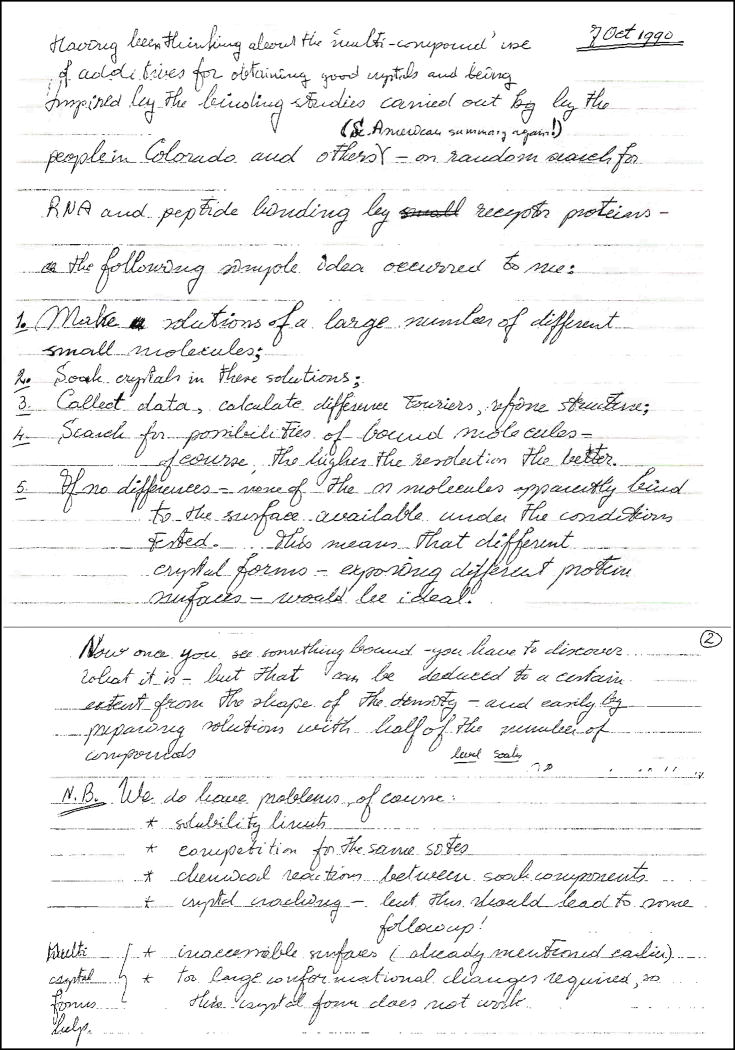 7 Oct 1990
Having been thinking about the 'multi-compound' use
of additives for obtaining good crystals and being
inspired by the binding studies carried out by by the
(Sc. American summary again!)
people in Colorado and others) – on random search for
RNA and peptide binding by small receptor proteins –
the following simple idea occurred to me:
1. Make solutions of a large number of different
small molecules;
2. Soak crystals in these solutions;
3. Collect data, calculate difference Fouriers, refine structure;
4. Search for possibilities of bound molecules –
of course, the higher the resolution the better.
5. If no differences – none of the n molecules apparently bind
to the surface available under the conditions
tested. This means that different
crystal forms – exposing different protein
surfaces – would be ideal.
2
Now once you see something bound – you have to discover
what it is – but that can be deduced to a certain
extent from the shape of the density – and easily by
preparing solutions with half of the number of
compounds
level soaks
N.B. We do have problems, of course:
* solubility limits
* competition for the same sites
* chemical reactions between soak components
* crystal cracking – but this should lead to some
followup!
Multi * inaccessible surfaces (already mentioned earlier)
crystal * too large conformational changes required, so
forms this crystal form does not work
help.